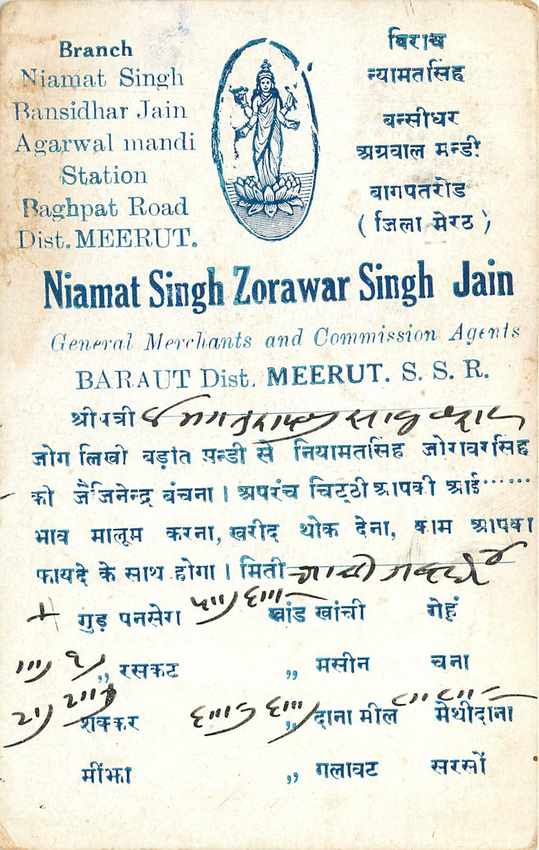 Branch
Niamat Singh
Bansidhar Jain
Agarwal mandi
Station
Baghpat Road
Dist. MEERUT.
बिराच
न्यामतसिंह
बन्सीधर
अग्रवाल मन्डी
बागपतरोड
( जिला मेरठ )
Niamat Singh Zorawar Singh Jain
General Merchants and Commission Agents
BARAUT Dist. MEERUT. S. S. R.
श्रीपत्री
जोग लिखी बड़ौत मन्डी से नियामतसिंह जोरावरसिंह
की जैजिनेन्द्र बंचना । अपरंच चिट्ठी आपकी आई
भाव मालूम करना, खरीद थोक देना, काम आपका
फायदे के साथ होगा । मिती
गुड़ पनसेरा खांड खांची गेहूं
,, रसकट ,, मसीन चना
शक्कर ,, दाना मील मेथीदाना
मींझा ,, गलावट सरसों